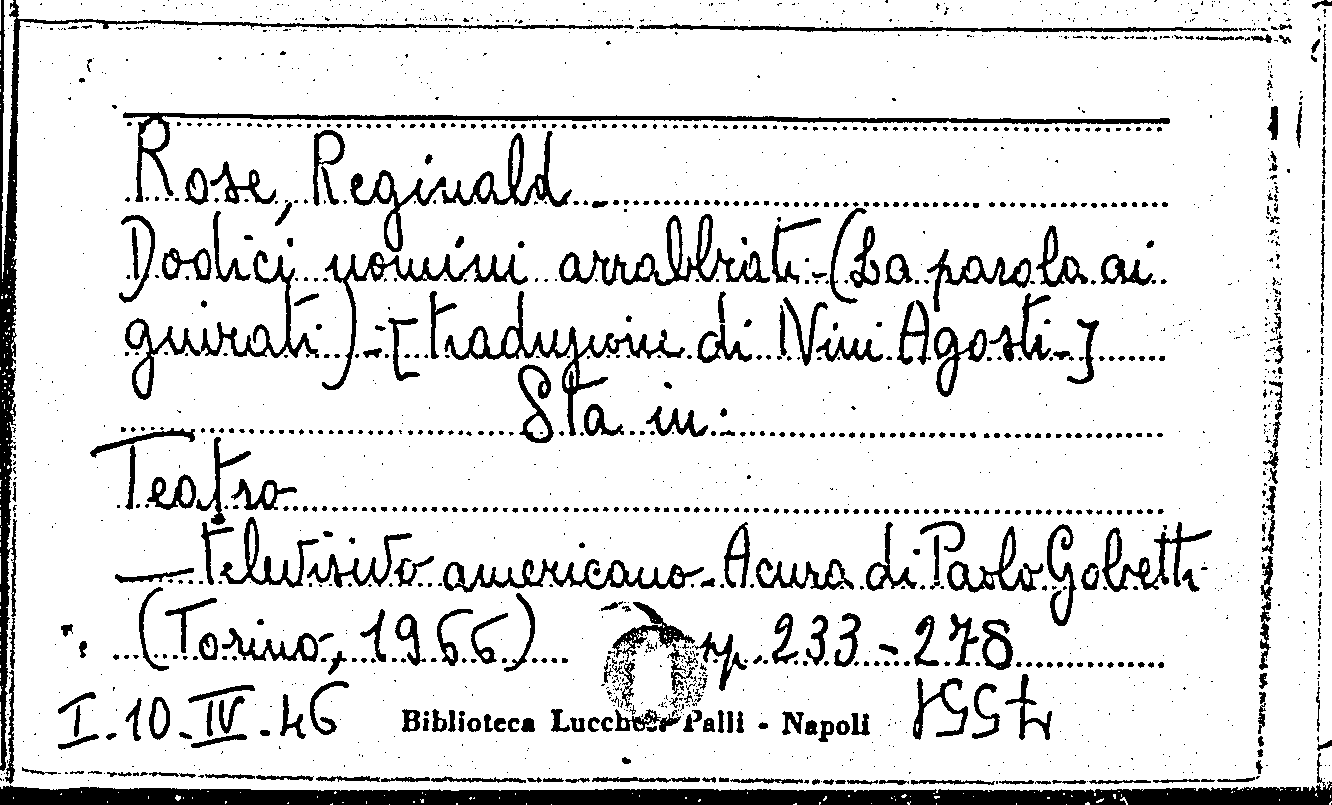 Rose, Reginald -
Dodici uomini arrabbiati - (La parola ai
giurati) - [traduzione di Nini Agosti -]
Sta in:
Teatro
televisivo americano - A cura di Paolo Gobetti
(Torino, 1966) pp. 233 - 278
I. 10 - IV - 46 Biblioteca Lucchesi Palli - Napoli